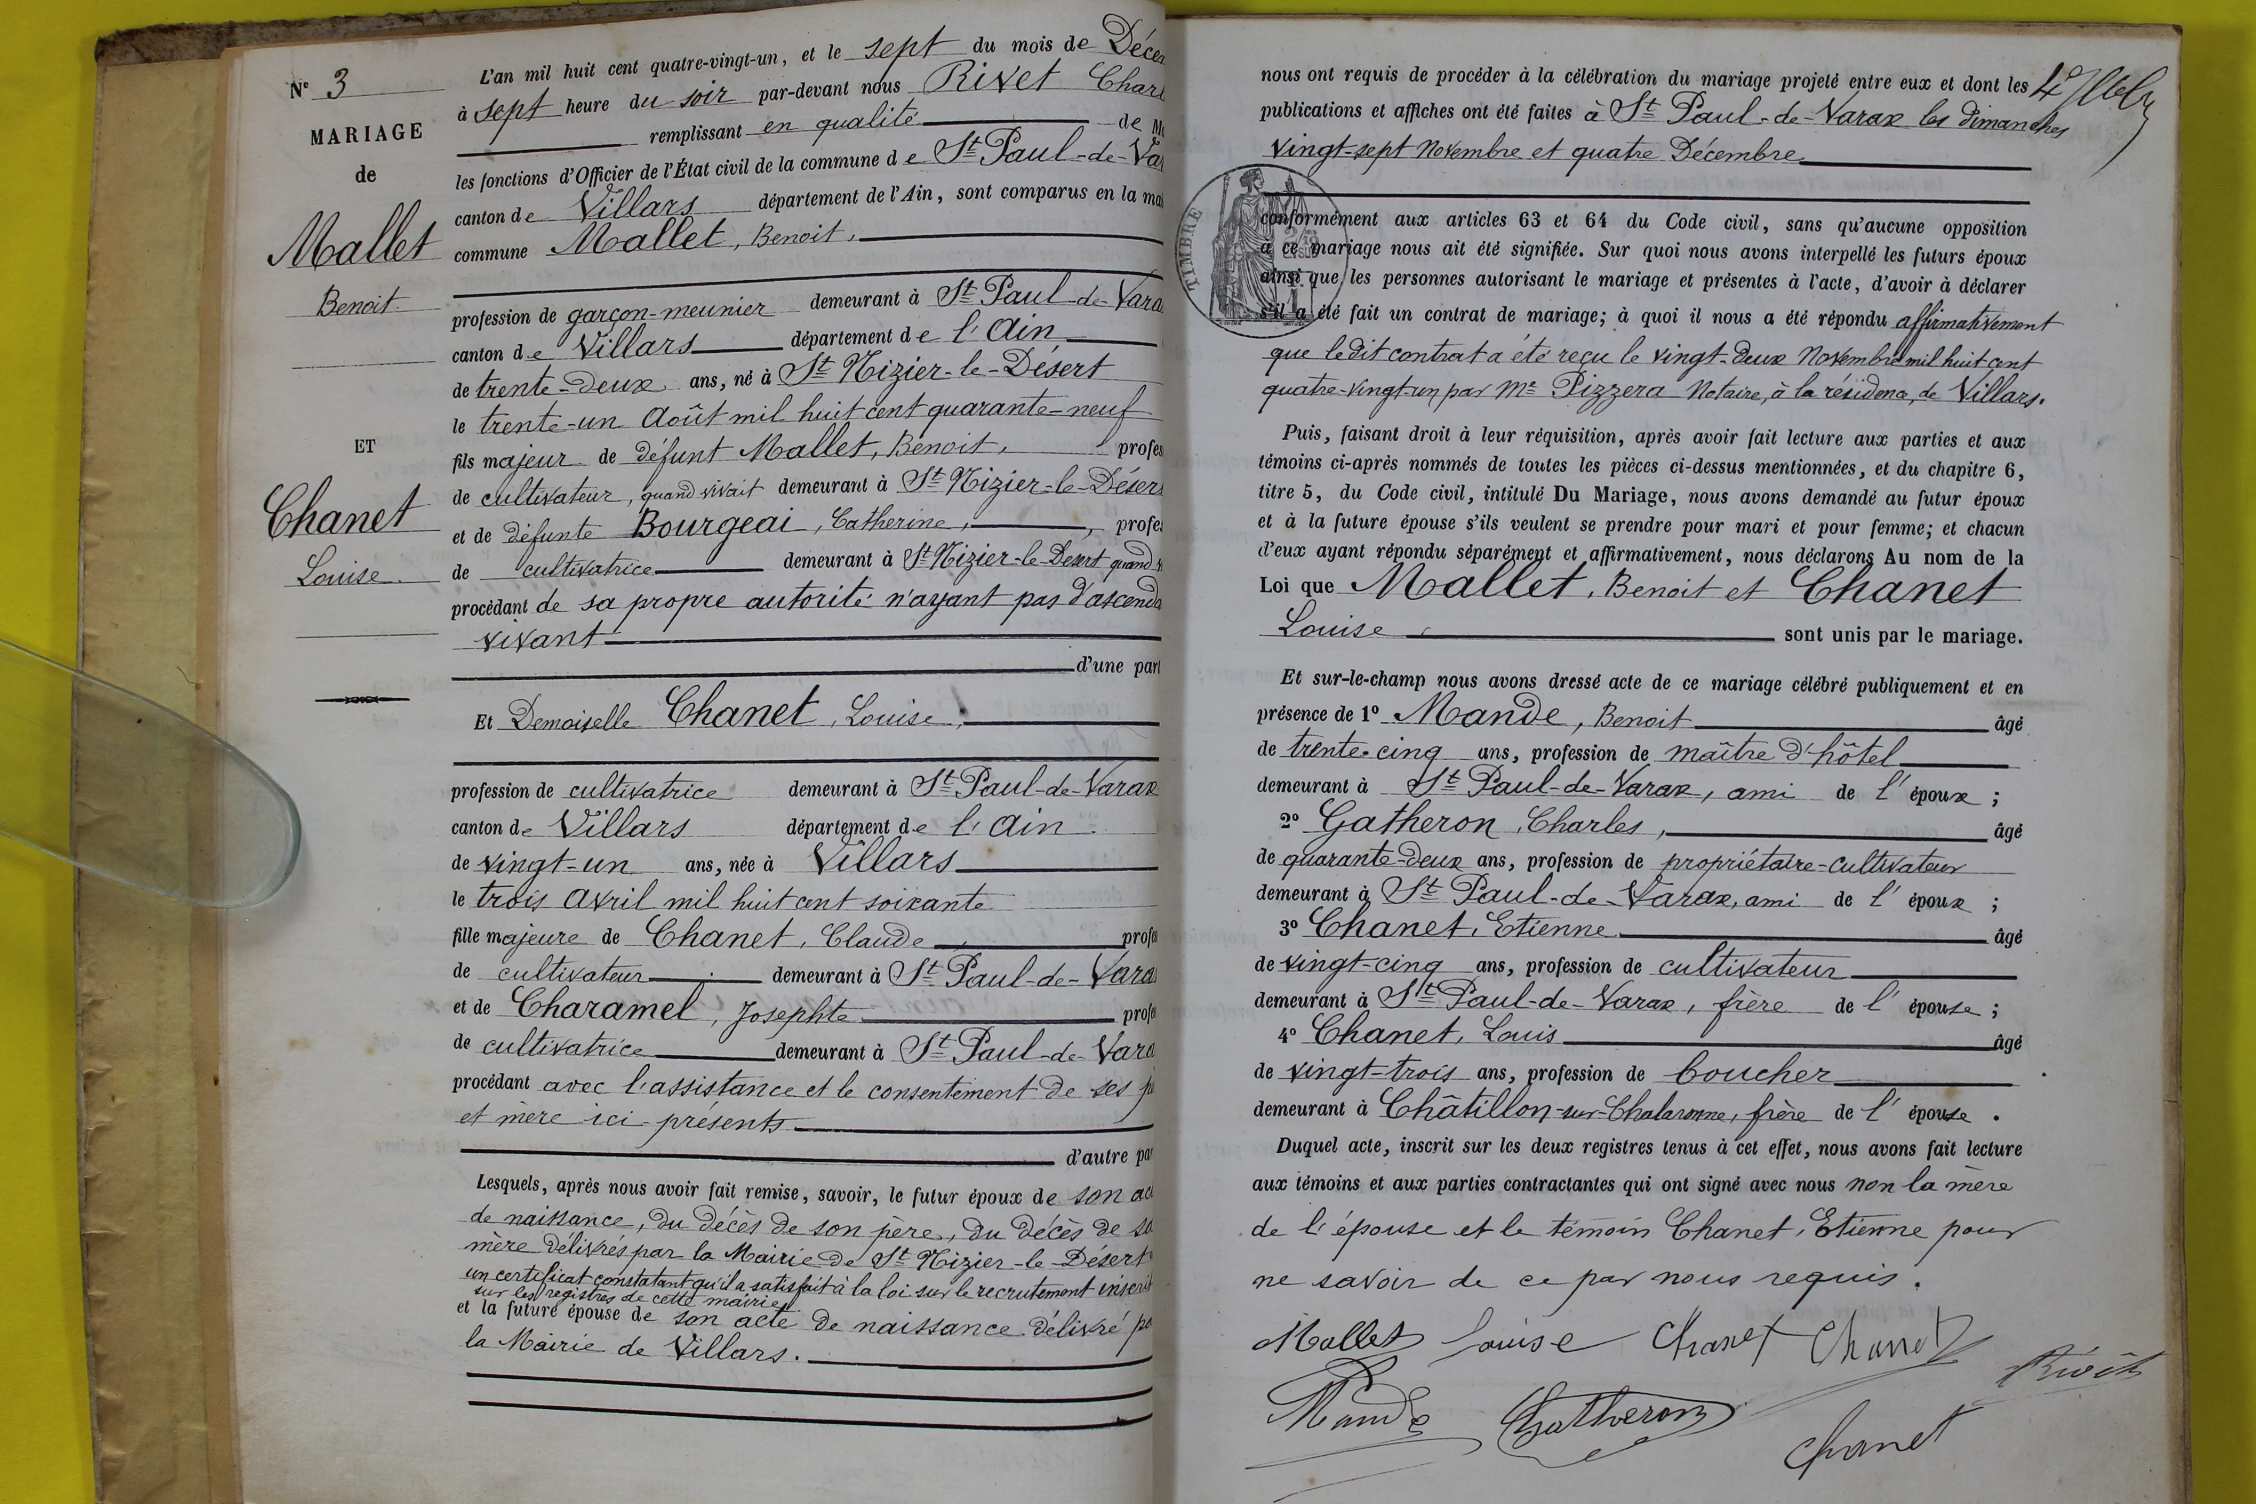 Nº 3
MARIAGE
de
Mallet
Benoit
ET
Chanet
Louise
L'an mil huit cent quatre-vingt-un, et le sept du mois de Décem
à sept heure du soir par-devant nous Rivet Charl
remplissant en qualité de M
les fonctions d'Officier de l'État civil de la commune de St Paul-de-Va
canton de Villars département de l'Ain, sont comparus en la ma
commune Mallet, Benoit,
profession de garçon-meunier demeurant à St Paul-de-Vara
canton de Villars département de l'Ain
de trente-deux ans, né à St Nizier-le-Désert
le trente-un Août mil huit cent quarante-neuf
fils majeur de défunt Mallet, Benoit, profes
de cultivateur, quand vivait demeurant à St Nizier-le-Déser
et de défunte Bourgeai, Catherine, profes
de cultivatrice demeurant à St Nizier-le-Désert quand
procédant de sa propre autorité n'ayant pas d'ascenda
vivant
d'une part
Et Demoiselle Chanet, Louise,
profession de cultivatrice demeurant à St Paul-de-Varax
canton de Villars département de l'Ain
de vingt-un ans, née à Villars
le trois Avril mil huit cent soixante
fille majeure de Chanet, Claude profe
de cultivateur demeurant à St Paul-de-Vara
et de Charamel, Josephte profe
de cultivatrice demeurant à St Paul-de-Vara
procédant avec l'assistance et le consentement de ses p
et mère ici présents
d'autre pa
Lesquels, après nous avoir fait remise, savoir, le futur époux de son ac
de naissance, du décès de son père, du décès de sa
mère délivrés par la Mairie de St Nizier-le-Désert
un certificat constatant qu'il a satisfait à la loi sur le recrutement inscrit
sur les registres de cette mairie
et la future épouse de son acte de naissance délivré pa
la Mairie de Villars.
nous ont requis de procéder à la célébration du mariage projeté entre eux et dont les
publications et affiches ont été faites à St Paul-de-Varax les dimanches
vingt-sept Novembre et quatre Décembre
TIMBRE
conformément aux articles 63 et 64 du Code civil, sans qu'aucune opposition
à ce mariage nous ait été signifiée. Sur quoi nous avons interpellé les futurs époux
ainsi que les personnes autorisant le mariage et présentes à l'acte, d'avoir à déclarer
s'il a été fait un contrat de mariage; à quoi il nous a été répondu affirmativement
que le dit contrat a été reçu le vingt-deux Novembre mil huit cent
quatre-vingt-un par Me Pizzera Notaire, à la résidence, de Villars.
Puis, faisant droit à leur réquisition, après avoir fait lecture aux parties et aux
témoins ci-après nommés de toutes les pièces ci-dessus mentionnées, et du chapitre 6,
titre 5, du Code civil, intitulé Du Mariage, nous avons demandé au futur époux
et à la future épouse s'ils veulent se prendre pour mari et pour femme; et chacun
d'eux ayant répondu séparément et affirmativement, nous déclarons Au nom de la
Loi que Mallet, Benoit et Chanet
Louise sont unis par le mariage.
Et sur-le-champ nous avons dressé acte de ce mariage célébré publiquement et en
présence de 1º Mande, Benoit âgé
de trente-cinq ans, profession de maître d'hôtel
demeurant à St Paul-de-Varax, ami de l'époux;
2º Gatheron, Charles, âgé
de quarante-deux ans, profession de propriétaire-cultivateur
demeurant à St Paul-de-Varax, ami de l'époux;
3º Chanet, Etienne âgé
de vingt-cinq ans, profession de cultivateur
demeurant à St Paul-de-Varax, frère de l'épouse;
4º Chanet, Louis âgé
de vingt-trois ans, profession de boucher
demeurant à Châtillon-sur-Chalaronne, frère de l'épouse.
Duquel acte, inscrit sur les deux registres tenus à cet effet, nous avons fait lecture
aux témoins et aux parties contractantes qui ont signé avec nous non la mère
de l'épouse et le témoin Chanet, Etienne pour
ne savoir de ce par nous requis.
Mallet Louise Chanet Chanet
Rivet
Mande Gatheron
Chanet